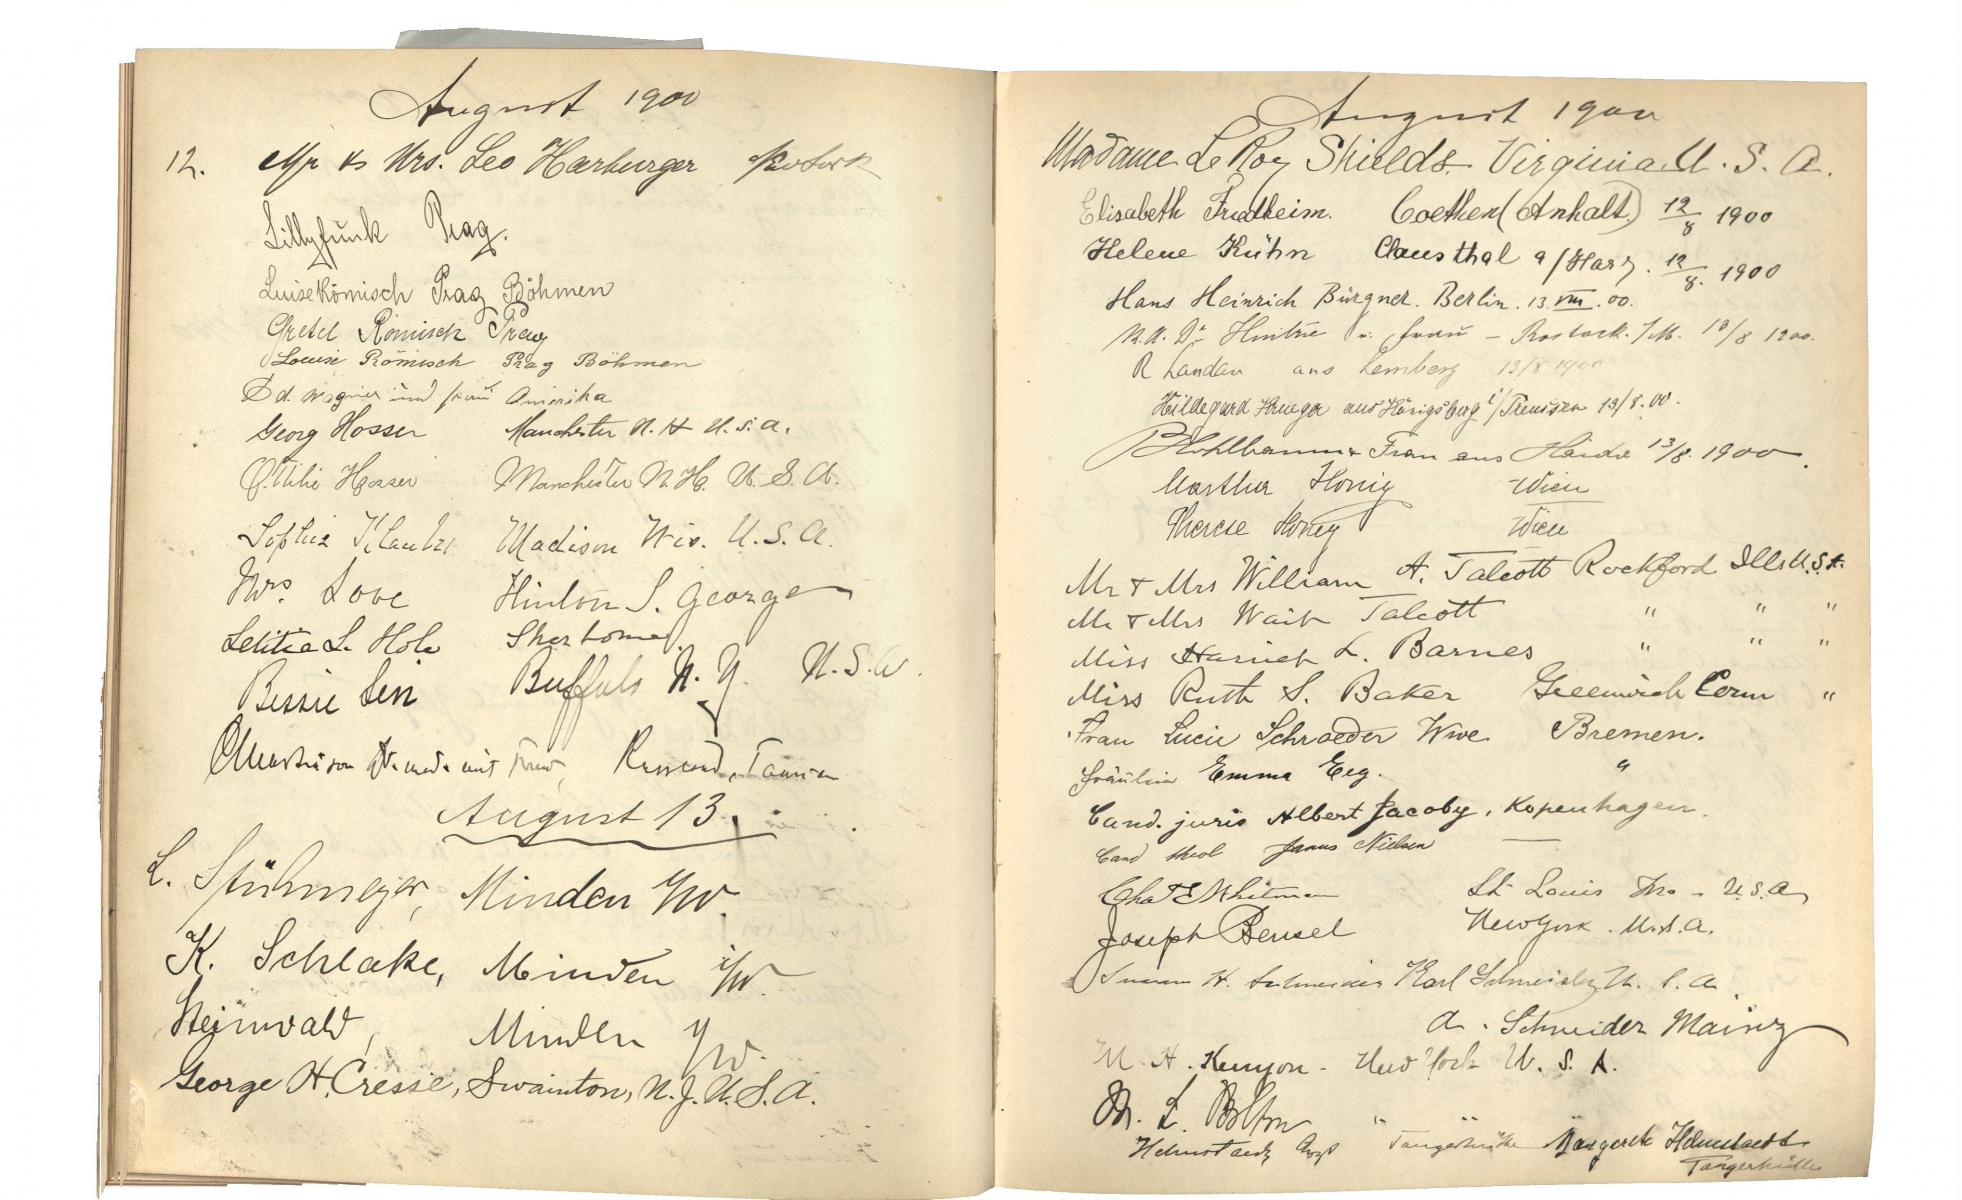 August 1900
12. Mr & Mrs. Leo Harburger
Lilly Funk Prag.
Luise Römisch Prag Böhmen
Gretel Römisch Prag
Louise Römisch Prag Böhmen
Ed. Wagner und Frau Amerika
Georg Hosser Manchester N. H U.S.A.
Ottilie Hosser Manchester N.H. U.S.A.
Sophie Madison Wis. U.S.A.
Mrs. Love Hinton S. George
Letitia L. Hole Sherborne.
Bessie Buffalo N.Y. U.S.A.
mit Frau,
August 13.
L. Stühmeyer, Minden i/W.
K. Schlake, Minden i/W.
Steinwald, Minden i/W.
George H. Cresse, Swainton, N.J. U.S.A.
August 1900
Madame Le Roy Shields. Virginia. U.S.A.
Elisabeth Friedheim. Coethen (Anhalt) 12/8 1900
Helene Kühn Clausthal a/Harz. 12/8. 1900
Hans Heinrich Bürgner. Berlin. 13. VIII. 00.
R.A. Dr u. Frau – Rostock i/M. 13/8 1900.
R Landau aus Lemberg 13/8 1900
Hildegard Krueger aus Königsberg i/Preussen 13/8.00.
Frau aus 13/8. 1900.
Marthur Honig Wien
Therese Honig Wien
Mr & Mrs William A. Talcott Rockford Ills U.S.A.
Mr & Mrs Wait Talcott " " "
Miss Harriet L. Barnes " " "
Miss Ruth S. Baker Greenwich Conn "
Frau Lucie Schraeder Wwe Bremen.
Fräulein Emma Eeg. "
Cand. juris Albert Jacoby, Kopenhagen.
Cand theol Janus Nielsen —
Chas E Whitman St Louis Mo – U.S.A,
Joseph Bensel New York. U.S.A.
H. Schneider Karl Schneider U. S. A.
A. Schneider Mainz
M. H. Kenyon – New York U. S. A.
M. L. Bolton " "
Helmstaedt Tangerhütte Margarete Helmstaedt
Tangerhütte